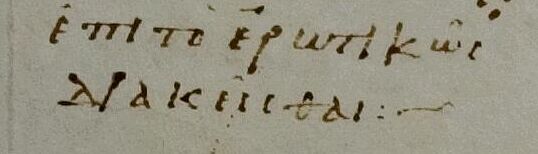 ἐπὶ τὸ ἐρωτικῶς
διακεῖσθαι:~